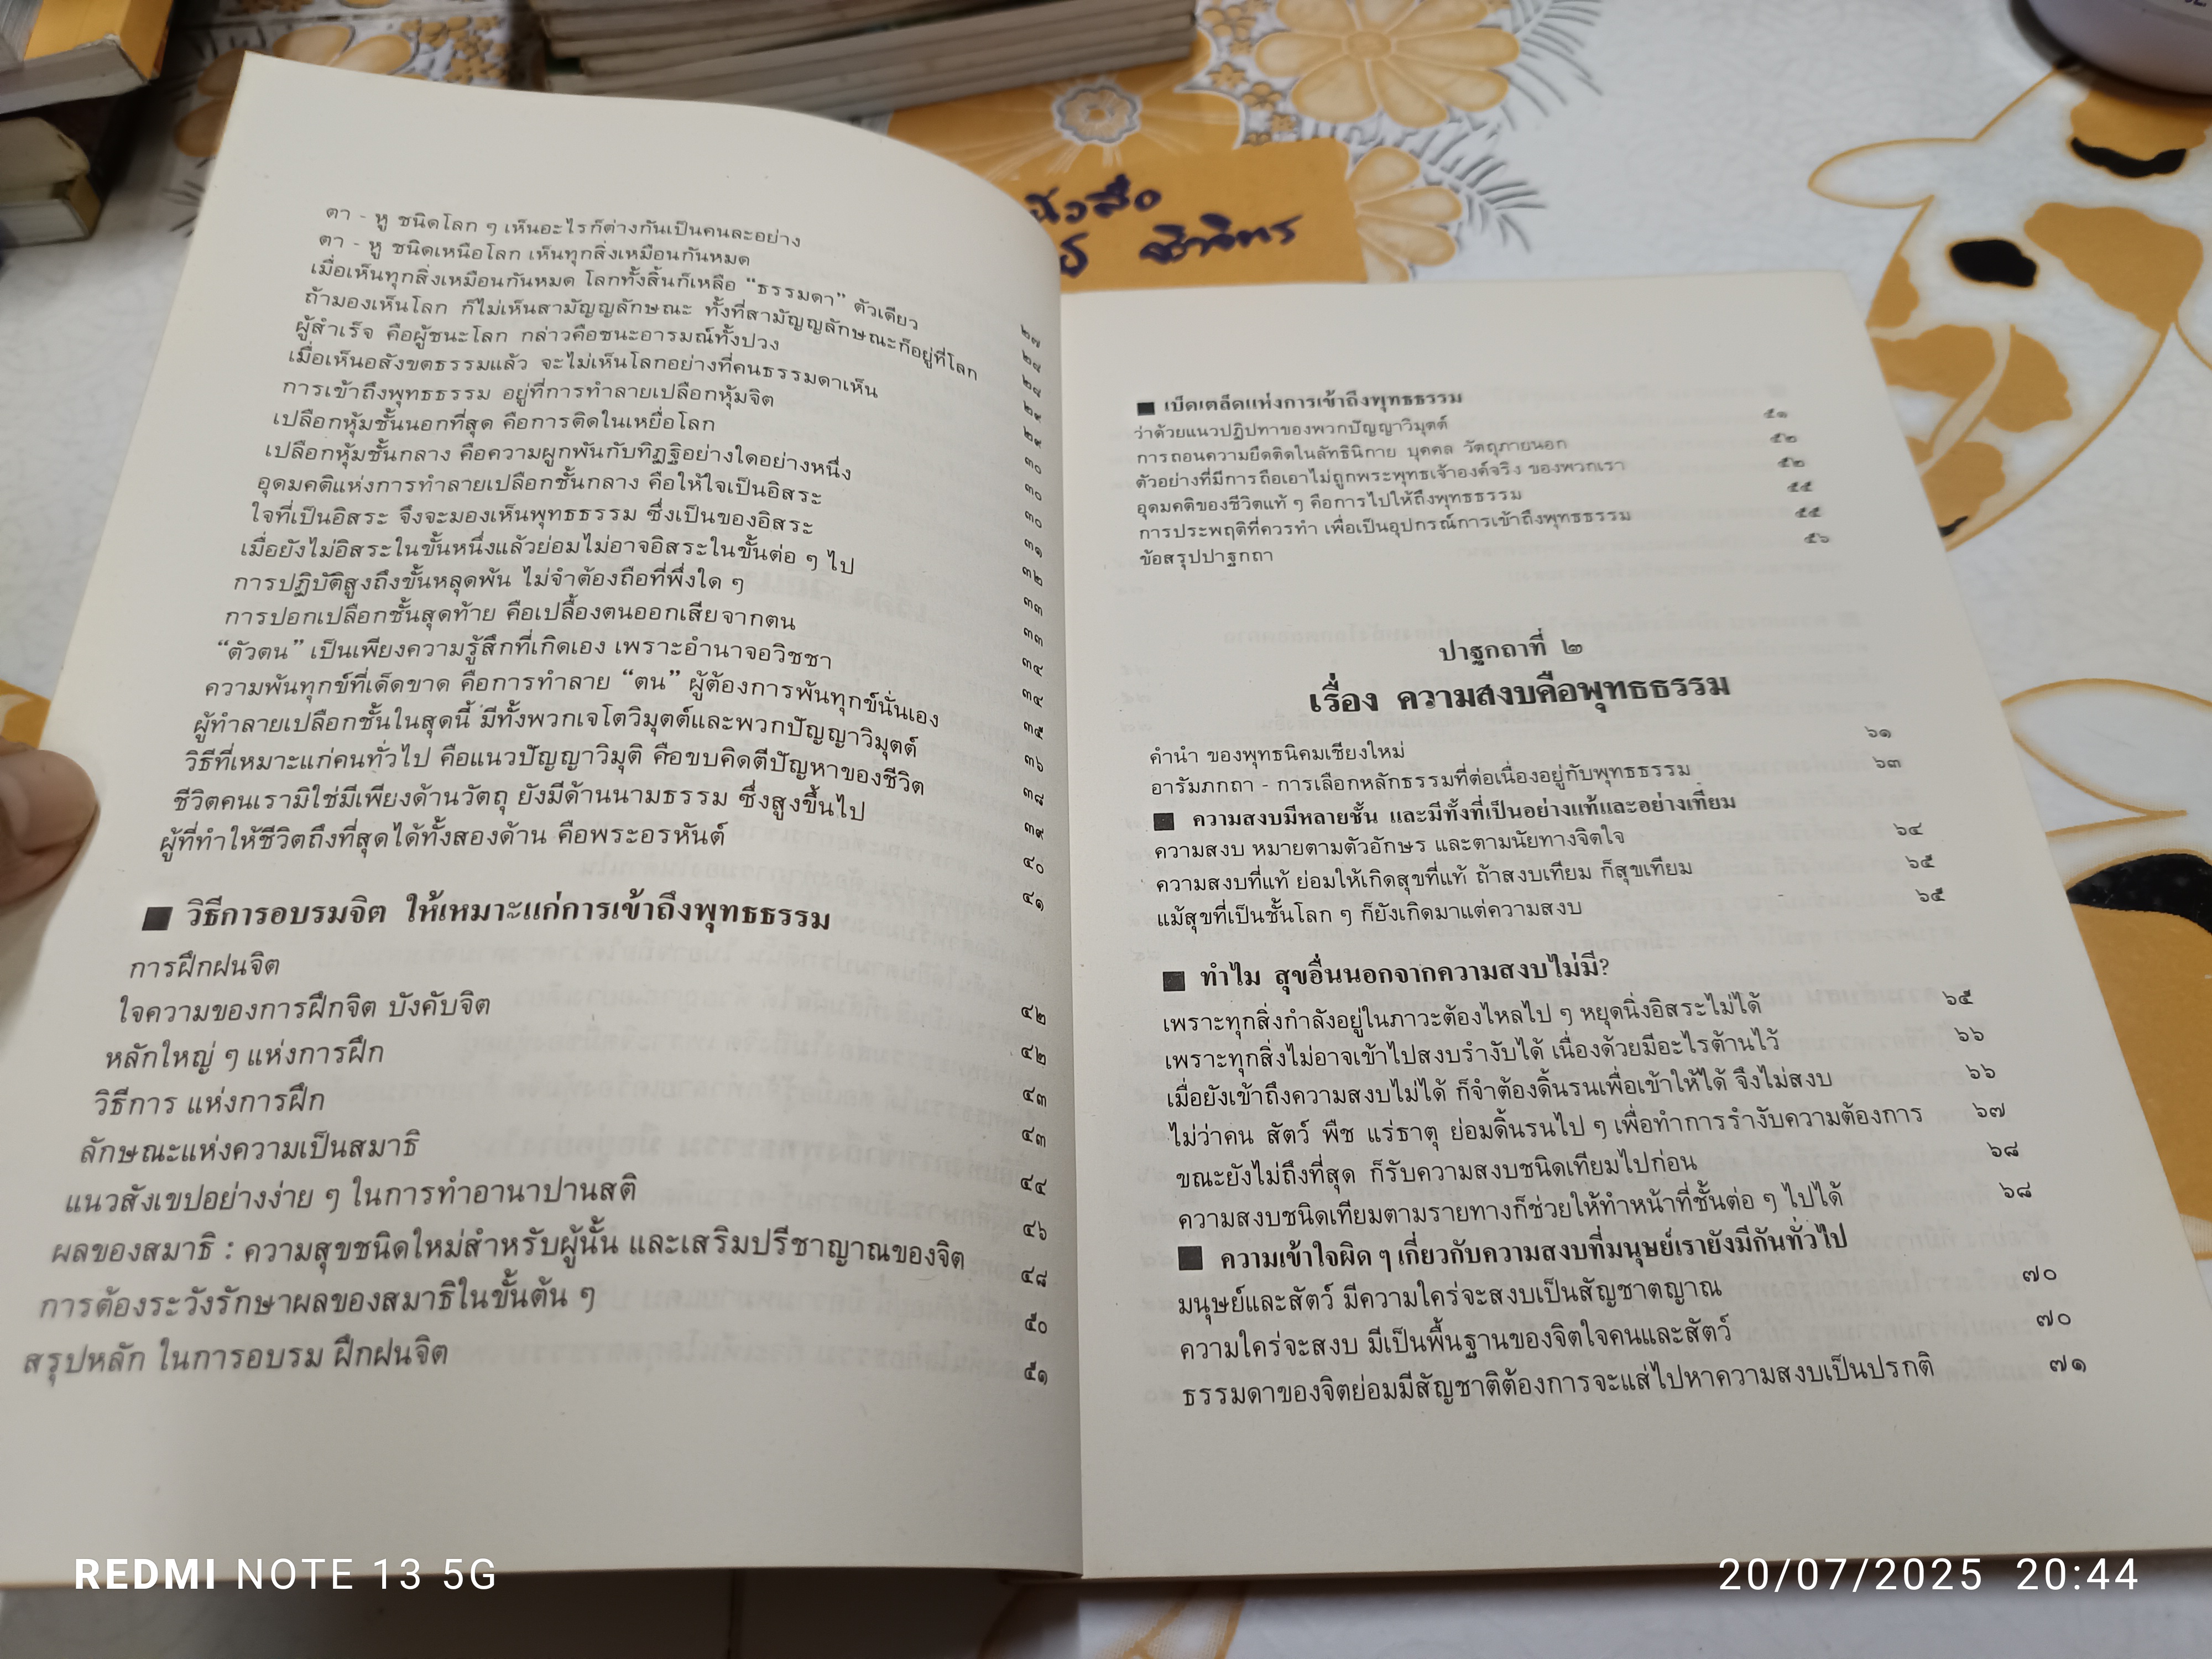 ตา - หู ชนิดโลก ๆ เห็นอะไรก็ต่างกันเป็นคนละอย่าง ๒๗
ตา - หู ชนิดเหนือโลก เห็นทุกสิ่งเหมือนกันหมด ๒๘
เมื่อเห็นทุกสิ่งเหมือนกันหมด โลกทั้งสิ้นก็เหลือ “ธรรมดา” ตัวเดียว ๒๘
ถ้ามองเห็นโลก ก็ไม่เห็นสามัญญลักษณะ ทั้งที่สามัญญลักษณะก็อยู่ที่โลก ๒๙
ผู้สำเร็จ คือผู้ชนะโลก กล่าวคือชนะอารมณ์ทั้งปวง ๒๙
เมื่อเห็นอสังขตธรรมแล้ว จะไม่เห็นโลกอย่างที่คนธรรมดาเห็น ๓๐
การเข้าถึงพุทธธรรม อยู่ที่การทำลายเปลือกหุ้มจิต ๓๐
เปลือกหุ้มชั้นนอกที่สุด คือการติดในเหยื่อโลก ๓๐
เปลือกหุ้มชั้นกลาง คือความผูกพันกับทิฏฐิอย่างใดอย่างหนึ่ง ๓๑
อุดมคติแห่งการทำลายเปลือกชั้นกลาง คือให้ใจเป็นอิสระ ๓๒
ใจที่เป็นอิสระ จึงจะมองเห็นพุทธธรรม ซึ่งเป็นของอิสระ ๓๓
เมื่อยังไม่อิสระในขั้นหนึ่งแล้วย่อมไม่อาจอิสระในขั้นต่อ ๆ ไป ๓๓
การปฏิบัติสูงถึงขั้นหลุดพ้น ไม่จำต้องถือที่พึ่งใด ๆ ๓๔
การปอกเปลือกชั้นสุดท้าย คือเปลื้องตนออกเสียจากตน ๓๔
“ตัวตน” เป็นเพียงความรู้สึกที่เกิดเอง เพราะอำนาจอวิชชา ๓๕
ความพ้นทุกข์ที่เด็ดขาด คือการทำลาย “ตน” ผู้ต้องการพ้นทุกข์นั่นเอง ๓๖
ผู้ทำลายเปลือกชั้นในสุดนี้ มีทั้งพวกเจโตวิมุตต์และพวกปัญญาวิมุตต์ ๓๘
วิธีที่เหมาะแก่คนทั่วไป คือแนวปัญญาวิมุติ คือขบคิดตีปัญหาของชีวิต ๓๙
ชีวิตคนเรามิใช่มีเพียงด้านวัตถุ ยังมีด้านนามธรรม ซึ่งสูงขึ้นไป ๔๐
ผู้ที่ทำให้ชีวิตถึงที่สุดได้ทั้งสองด้าน คือพระอรหันต์ ๔๑
■ วิธีการอบรมจิต ให้เหมาะแก่การเข้าถึงพุทธธรรม
การฝึกฝนจิต ๔๒
ใจความของการฝึกจิต บังคับจิต ๔๒
หลักใหญ่ ๆ แห่งการฝึก ๔๓
วิธีการ แห่งการฝึก ๔๓
ลักษณะแห่งความเป็นสมาธิ ๔๔
แนวสังเขปอย่างง่าย ๆ ในการทำอานาปานสติ ๔๖
ผลของสมาธิ : ความสุขชนิดใหม่สำหรับผู้นั้น และเสริมปรีชาญาณของจิต ๔๘
การต้องระวังรักษาผลของสมาธิในขั้นต้น ๆ ๕๐
สรุปหลัก ในการอบรม ฝึกฝนจิต ๕๑
■ เบ็ดเตล็ดแห่งการเข้าถึงพุทธธรรม
ว่าด้วยแนวปฏิปทาของพวกปัญญาวิมุตต์ ๕๑
การถอนความยึดติดในลัทธินิกาย บุคคล วัตถุภายนอก ๕๒
ตัวอย่างที่มีการถือเอาไม่ถูกพระพุทธเจ้าองค์จริง ของพวกเรา ๕๒
อุดมคติของชีวิตแท้ ๆ คือการไปให้ถึงพุทธธรรม ๕๕
การประพฤติที่ควรทำ เพื่อเป็นอุปกรณ์การเข้าถึงพุทธธรรม ๕๕
ข้อสรุปปาฐกถา ๕๖
ปาฐกถาที่ ๒
เรื่อง ความสงบคือพุทธธรรม
คำนำ ของพุทธนิคมเชียงใหม่ ๖๑
อารัมภกถา - การเลือกหลักธรรมที่ต่อเนื่องอยู่กับพุทธธรรม ๖๓
■ ความสงบมีหลายชั้น และมีทั้งที่เป็นอย่างแท้และอย่างเทียม
ความสงบ หมายตามตัวอักษร และตามนัยทางจิตใจ ๖๔
ความสงบที่แท้ ย่อมให้เกิดสุขที่แท้ ถ้าสงบเทียม ก็สุขเทียม ๖๕
แม้สุขที่เป็นชั้นโลก ๆ ก็ยังเกิดมาแต่ความสงบ ๖๕
■ ทำไม สุขอื่นนอกจากความสงบไม่มี?
เพราะทุกสิ่งกำลังอยู่ในภาวะต้องไหลไป ๆ หยุดนิ่งอิสระไม่ได้ ๖๕
เพราะทุกสิ่งไม่อาจเข้าไปสงบรำงับได้ เนื่องด้วยมีอะไรต้านไว้ ๖๖
เมื่อยังเข้าถึงความสงบไม่ได้ ก็จำต้องดิ้นรนเพื่อเข้าให้ได้ จึงไม่สงบ ๖๖
ไม่ว่าคน สัตว์ พืช แร่ธาตุ ย่อมดิ้นรนไป ๆ เพื่อทำการรำงับความต้องการ ๖๗
ขณะยังไม่ถึงที่สุด ก็รับความสงบชนิดเทียมไปก่อน ๖๘
ความสงบชนิดเทียมตามรายทางก็ช่วยให้ทำหน้าที่ชั้นต่อ ๆ ไปได้ ๖๘
■ ความเข้าใจผิด ๆ เกี่ยวกับความสงบที่มนุษย์เรายังมีกันทั่วไป
มนุษย์และสัตว์ มีความใคร่จะสงบเป็นสัญชาตญาณ ๗๐
ความใคร่จะสงบ มีเป็นพื้นฐานของจิตใจคนและสัตว์ ๗๐
ธรรมดาของจิตย่อมมีสัญชาติต้องการจะแส่ไปหาความสงบเป็นปรกติ ๗๑
REDMI NOTE 13 5G
20/07/2025 20:44